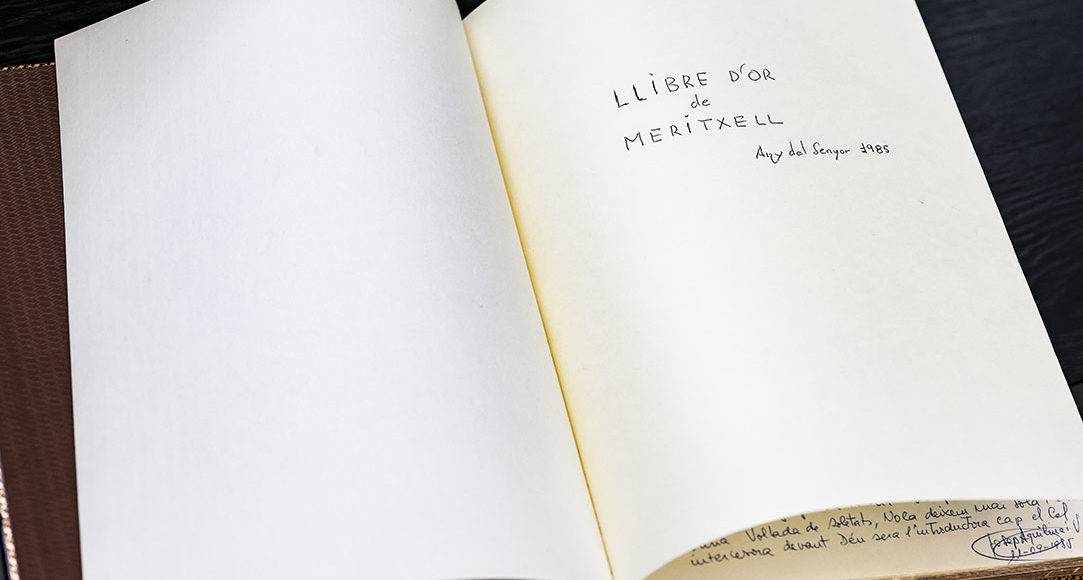 LLiBRE D'OR
de
MERiTXELL
Any del Senyor 1985
Voltada de solitats, No la deixem mai sola
intercesora devant Déu sera l'introductora cap el Cel
11-09-1985